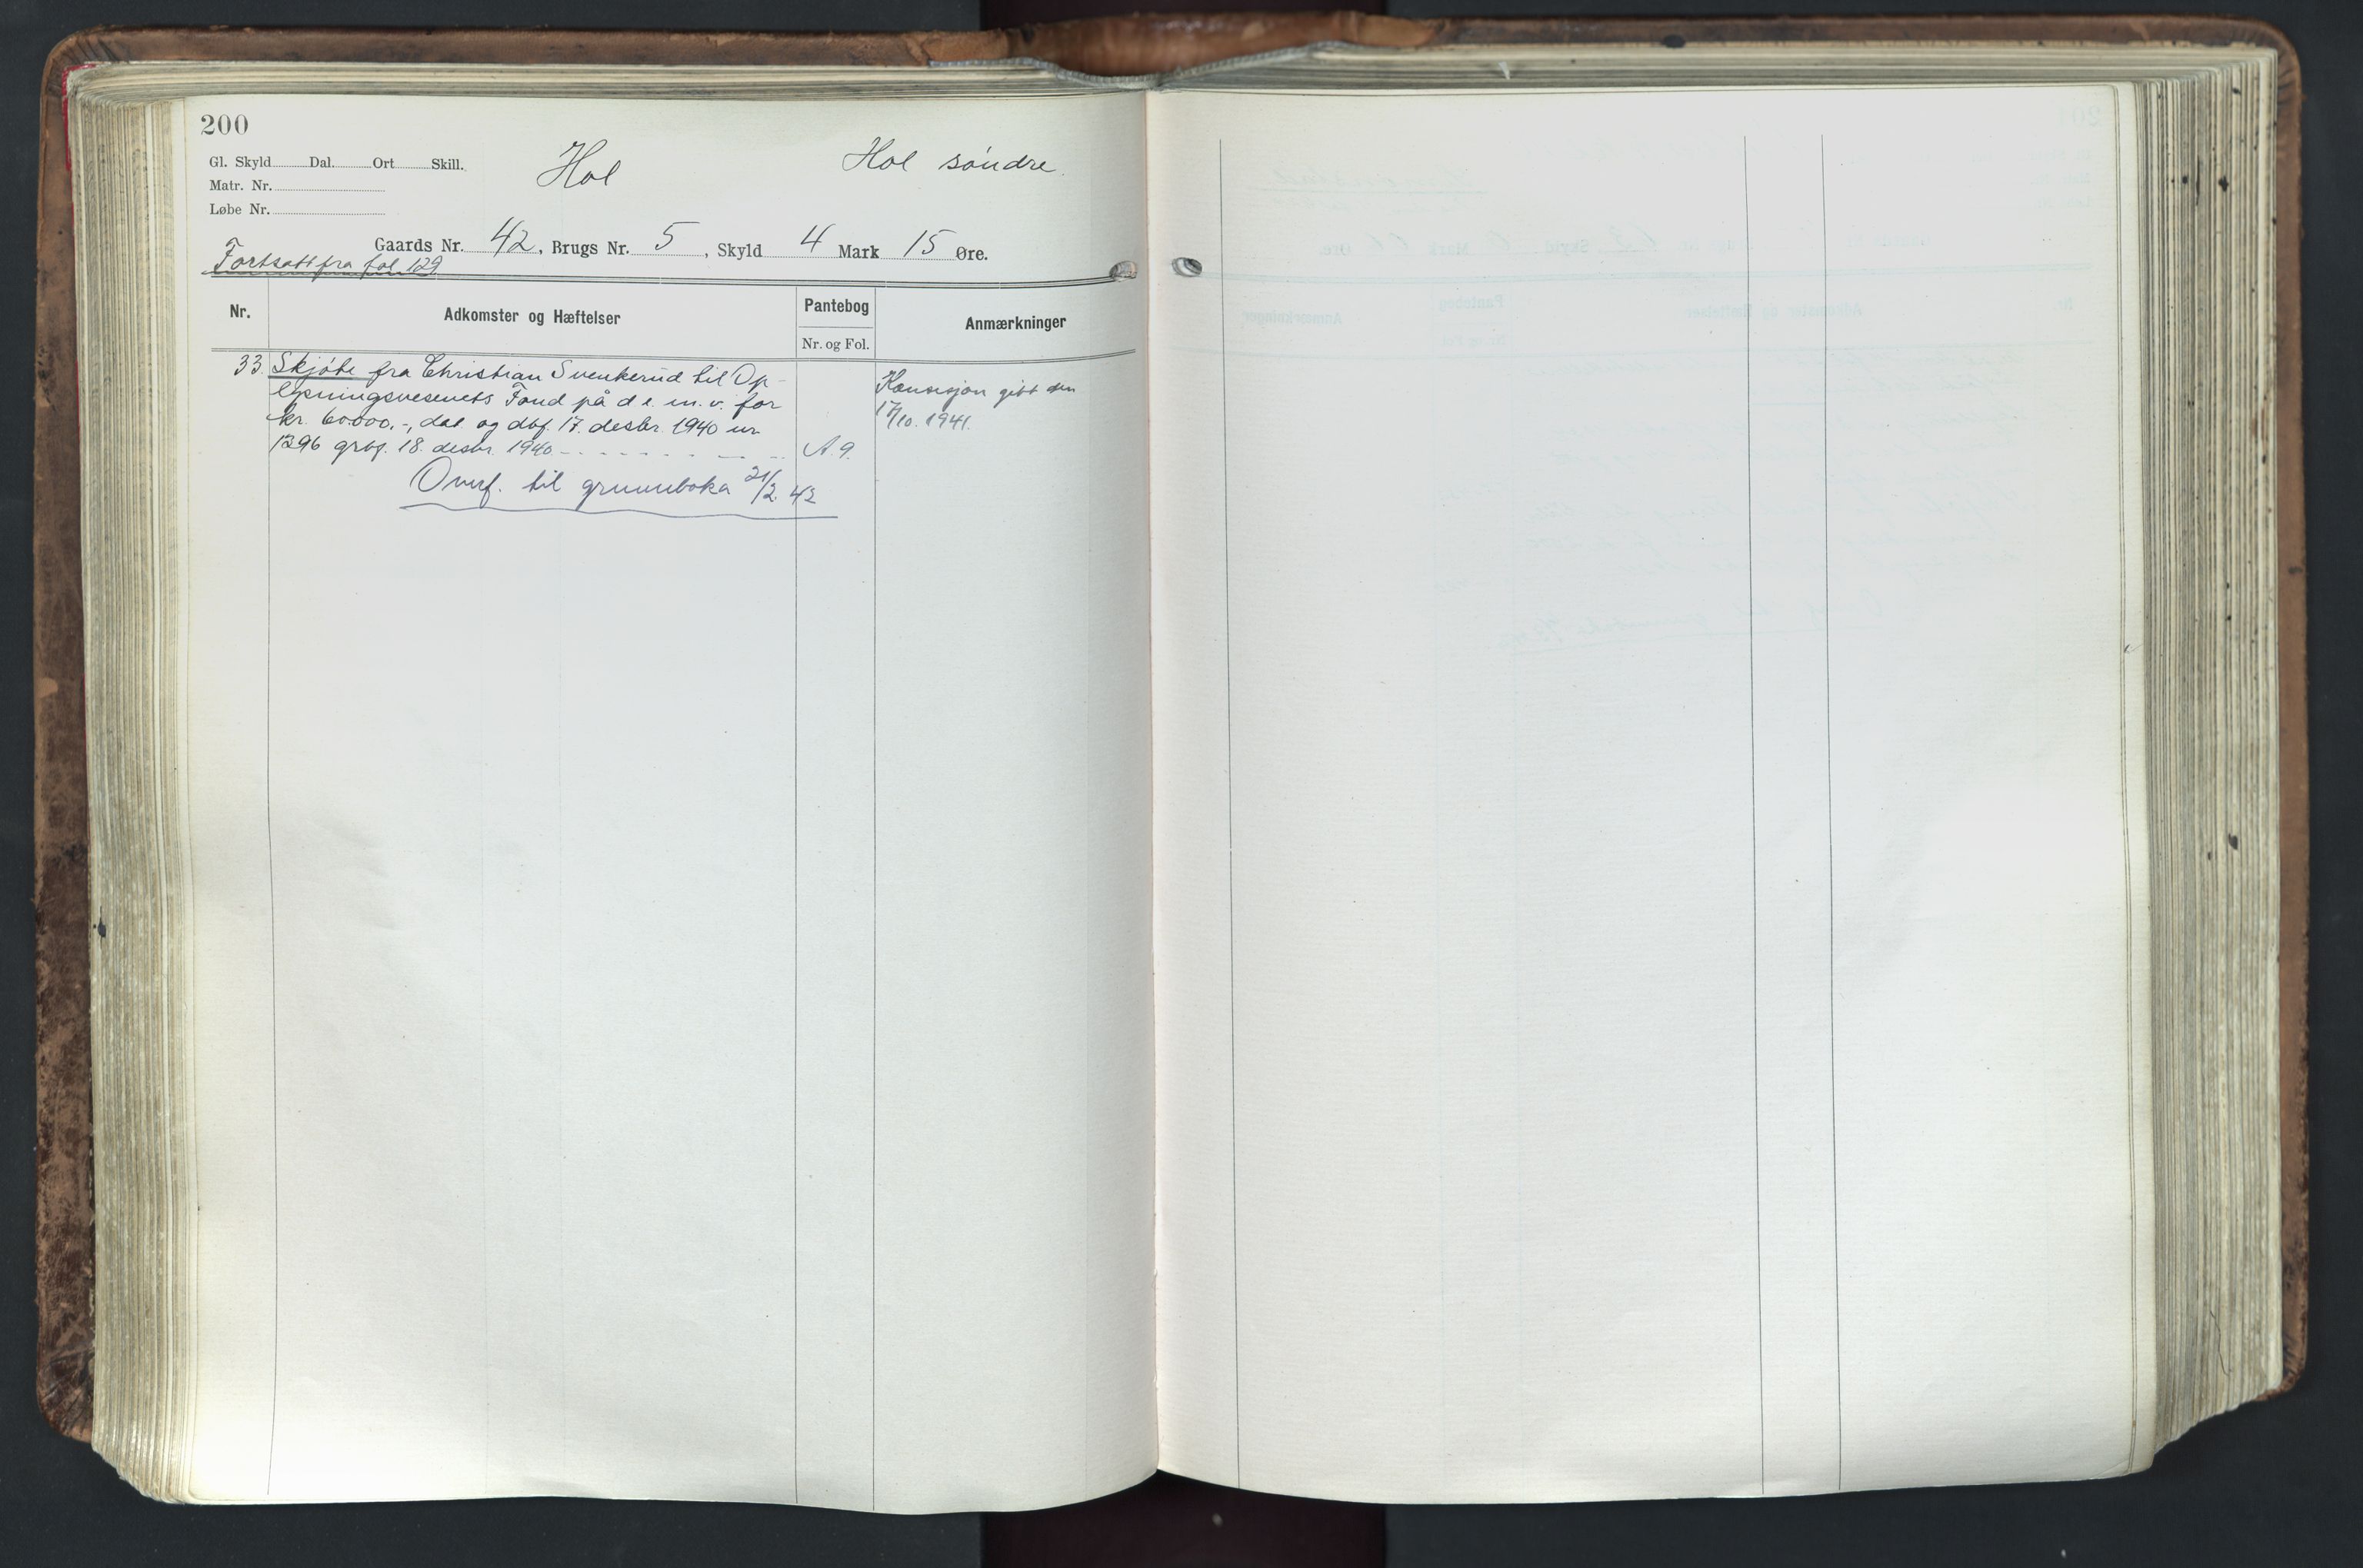 200
Gl. Skyld Dal. Ort Skill.
Matr. Nr.
Løbe Nr.
Hol
Hol søndre.
Gaards Nr. 42, Brugs Nr. 5, Skyld 4 Mark 15 Øre.
Fortsatt fra fol. 129
Nr.
Adkomster og Hæftelser
Pantebog
Nr. og Fol.
Anmærkninger
33. Skjøte fra Christian Svenkerud til Op-
lysningsvesenets Fond på d. e. m. v. for
kr. 60.000,-, dat og dbf. 17. desbr. 1940 nr
1296 grbg. 18. desbr. 1940
A. 9.
Konsesjon gitt den
17/10. 1941.
Overf. til grunnboka 21/2. 42